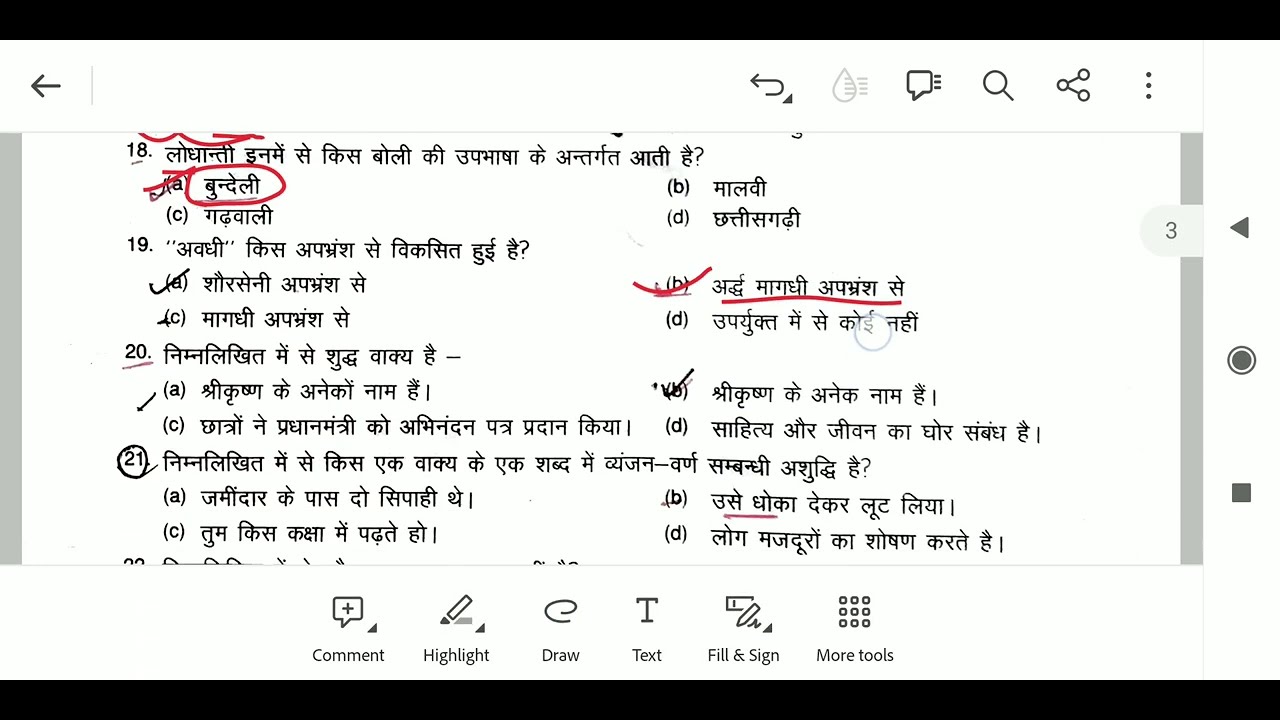 18. लोधान्ती इनमें से किस बोली की उपभाषा के अन्तर्गत आती है?
(a) बुन्देली (b) मालवी
(c) गढ़वाली (d) छत्तीसगढ़ी
3
19. "अवधी" किस अपभ्रंश से विकसित हुई है?
(a) शौरसेनी अपभ्रंश से (b) अर्द्ध मागधी अपभ्रंश से
(c) मागधी अपभ्रंश से (d) उपर्युक्त में से कोई नहीं
20. निम्नलिखित में से शुद्ध वाक्य है –
(a) श्रीकृष्ण के अनेकों नाम हैं। (b) श्रीकृष्ण के अनेक नाम हैं।
(c) छात्रों ने प्रधानमंत्री को अभिनंदन पत्र प्रदान किया। (d) साहित्य और जीवन का घोर संबंध है।
21. निम्नलिखित में से किस एक वाक्य के एक शब्द में व्यंजन–वर्ण सम्बन्धी अशुद्धि है?
(a) जमींदार के पास दो सिपाही थे। (b) उसे धोका देकर लूट लिया।
(c) तुम किस कक्षा में पढ़ते हो। (d) लोग मजदूरों का शोषण करते है।
Comment Highlight Draw Text Fill & Sign More tools